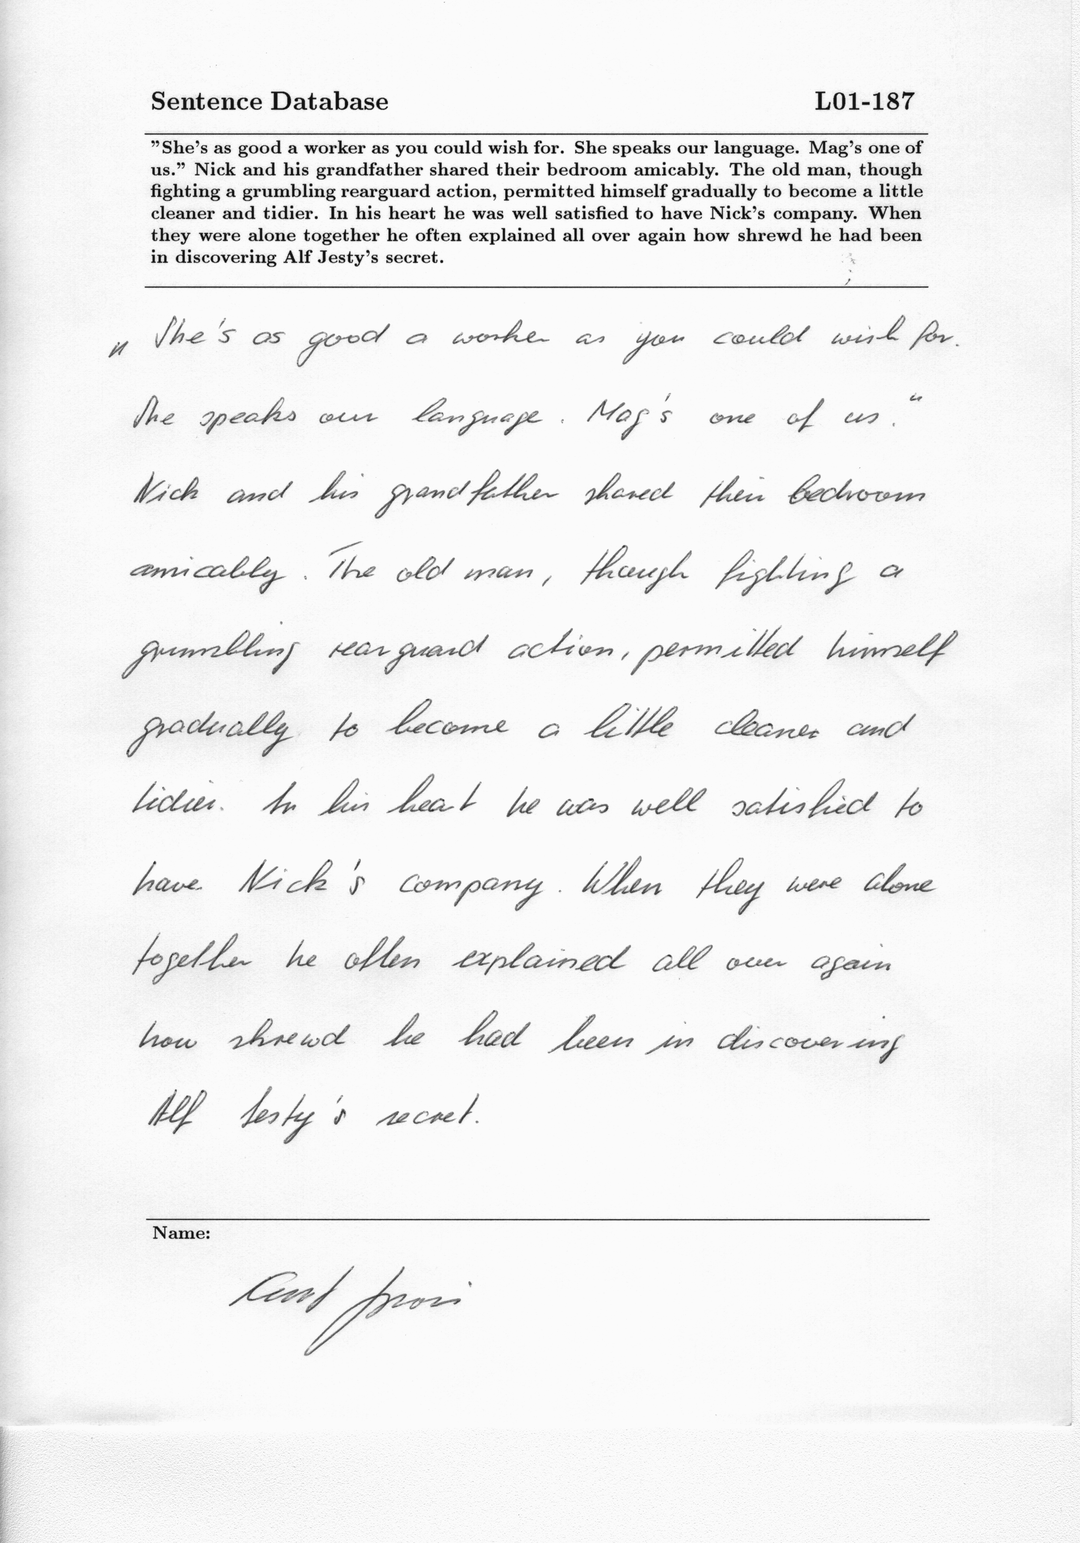 Sentence Database L01-187
"She's as good a worker as you could wish for. She speaks our language. Mag's one of
us." Nick and his grandfather shared their bedroom amicably. The old man, though
fighting a grumbling rearguard action, permitted himself gradually to become a little
cleaner and tidier. In his heart he was well satisfied to have Nick's company. When
they were alone together he often explained all over again how shrewd he had been
in discovering Alf Jesty's secret.
"She's as good a worker as you could wish for.
She speaks our language. Mag's one of us."
Nick and his grandfather shared their bedroom
amicably. The old man, though fighting a
grumbling rearguard action, permitted himself
gradually to become a little cleaner and
tidier. In his heart he was well satisfied to
have Nick's company. When they were alone
together he often explained all over again
how shrewd he had been in discovering
Alf Jesty's secret.
Name: